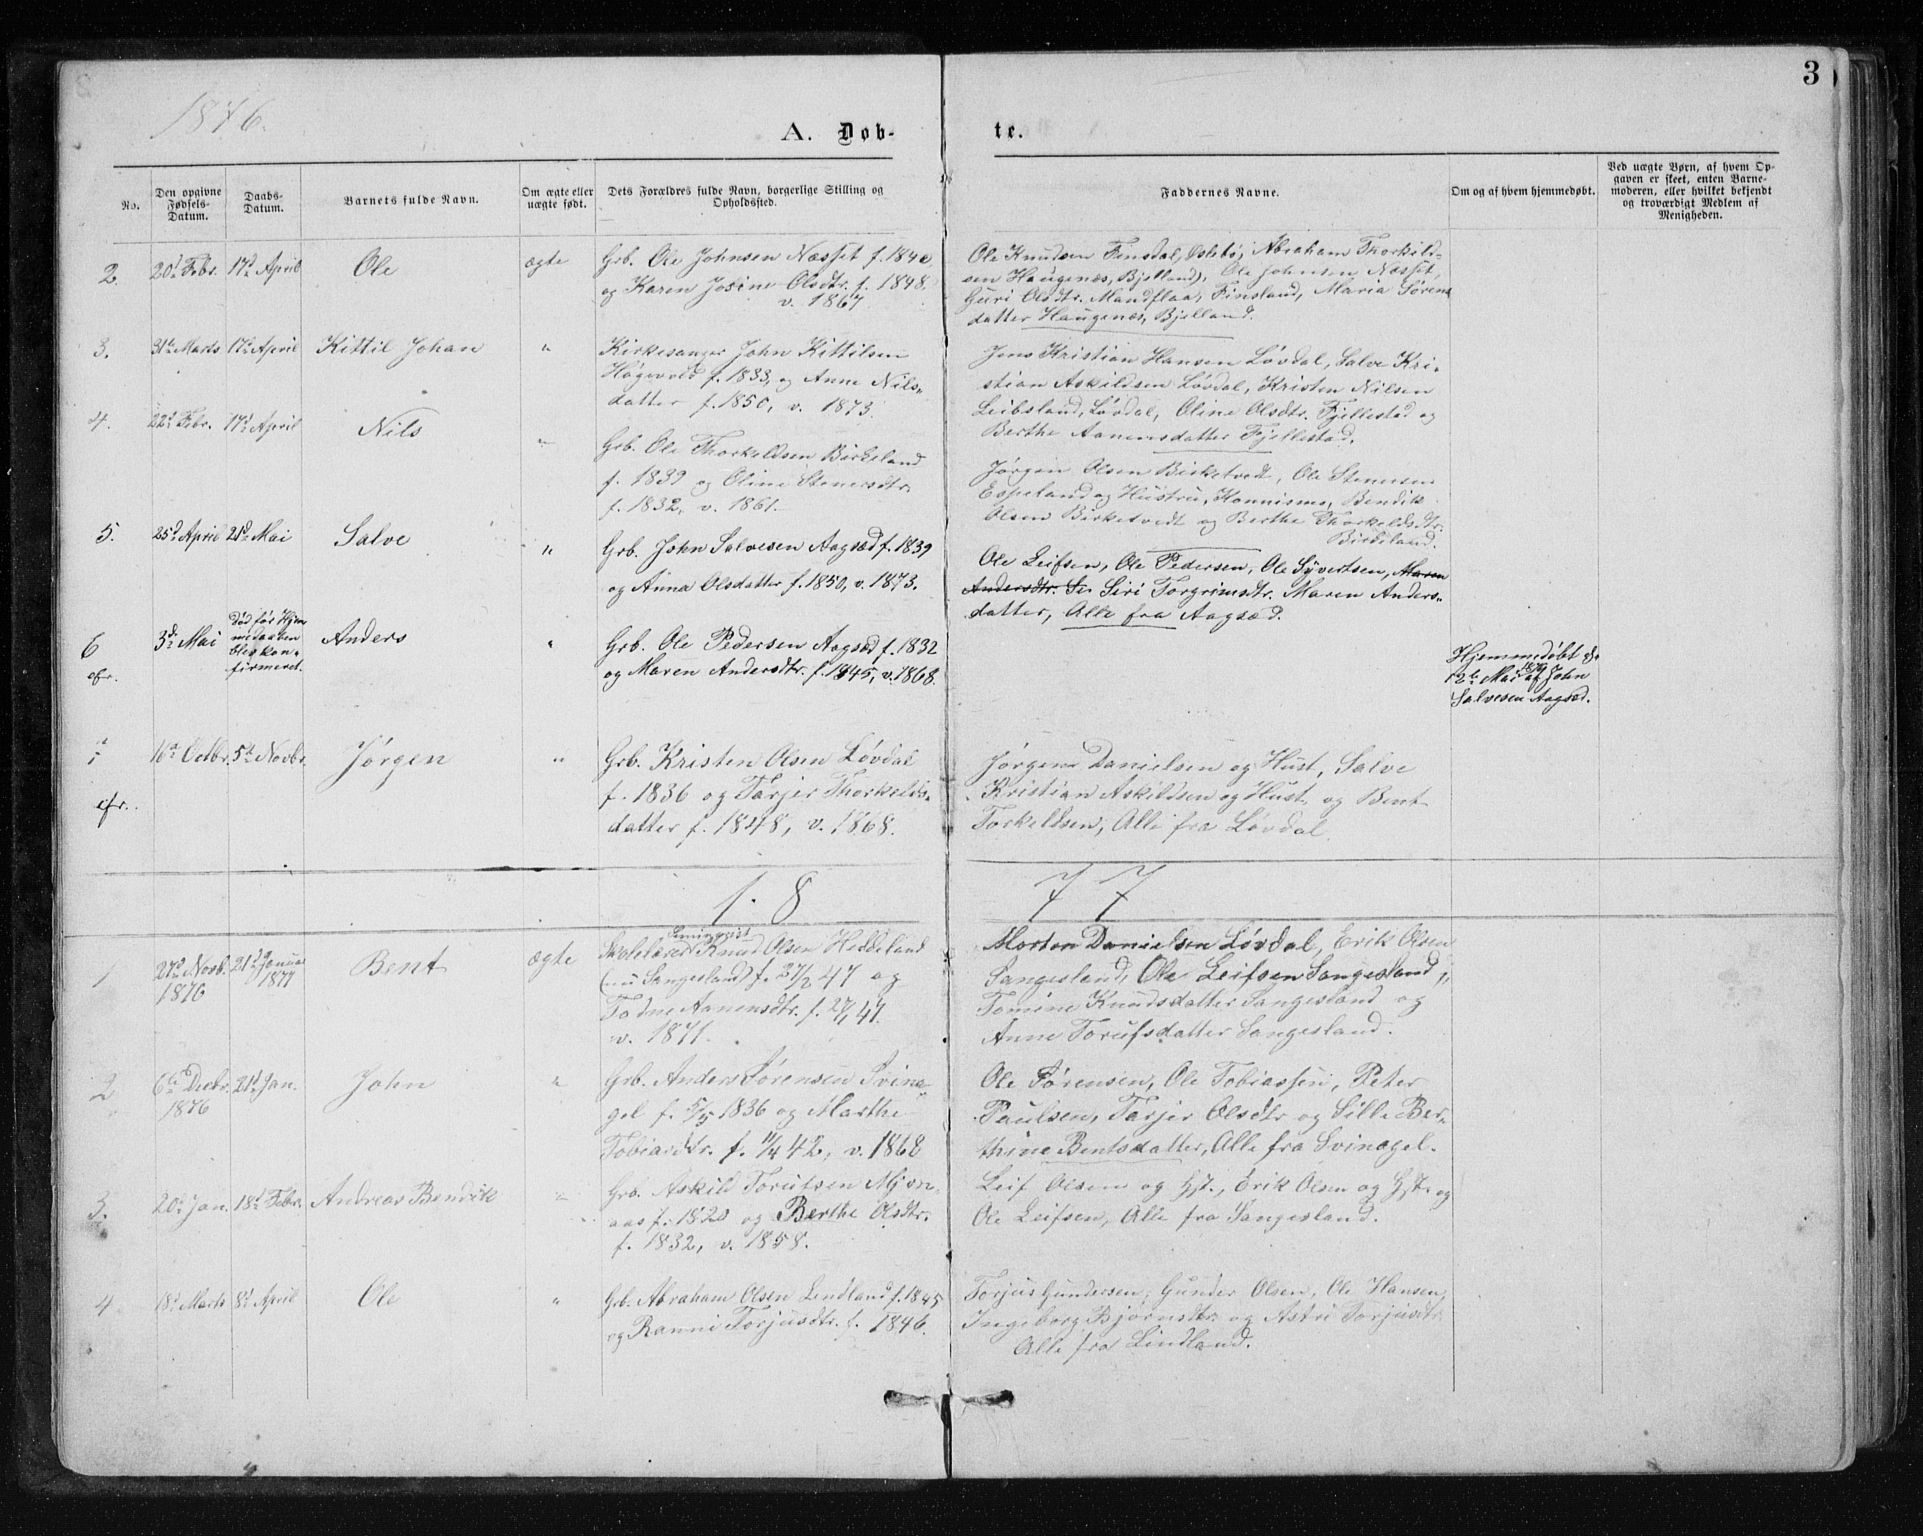 3
1876.
A. Døb-
te.
No.
Den opgivne Fødsels-Datum.
Daabs-Datum.
Barnets fulde Navn.
Om ægte eller uægte født.
Dets Forældres fulde Navn, borgerlige Stilling og Opholdssted.
Faddernes Navne.
Om og af hvem hjemmedøbt.
Ved uægte Børn, af hvem Op-
gaven er skeet, enten Barne-
moderen, eller hvilket bekjendt
og troværdigt Medlem af
Menigheden.
2. 20de Febr. 17de April Ole ægte
Grb. Ole Johnsen Næsset f. 1840
og Karen Josine Olsdtr. f. 1848.
v. 1867
Ole Knudsen Finsdal, Oslebø, Abraham Thorkild-
sen Haugenæs, Bjelland, Ole Johnsen Næsset,
Guri Olsdtr. Mandflaa, Finsland, Maria Sørens
datter Haugenæs, Bjelland.
3. 31te Marts 17de April Kittil Johan "
Kirkesanger John Kittilsen
Høgevold f. 1833, og Anne Nils-
datter f. 1850, v. 1873.
Jens Kristian Hansen Løvdal, Salve Kri-
stian Askildsen Løvdal, Kristen Nilsen
Leibsland, Løvdal, Oline Olsdtr. Fjellestad og
Berthe Aanensdatter Fjellestad.
4. 22de Febr. 17de April Nils "
Grb. Ole Thorkeldsen Birkeland
f. 1839 og Oline Stenersdtr.
f. 1832, v. 1861.
Jørgen Olsen Birketvedt, Ole Stenersen
Espeland og Hustru, Konnismo, Bendik
Olsen Birketvedt og Berthe Thorkeldsdtr.
Birkeland.
5. 25de April 21de Mai Salve "
Grb. John Salvesen Aagsæd f. 1839
og Anna Olsdatter f. 1850, v. 1873.
Ole Leifsen, Ole Pedersen, Ole Syvertsen, Maren
Andersdtr. Se. Siri Torgrimsdtr. Maren Anders-
datter, Alle fra Aagsæd.
6
cfr.
3de Mai
Død før Hjem
medaaben
blev kon-
firmeret.
Anders "
Grb. Ole Pedersen Aagsæd f. 1832
og Maren Andersdtr. f. 1845, v. 1868.
Hjemmedøbt d.
12te Mai 1876 af John
Salvesen Aagsæd.
7
cfr.
16de Octbr. 5te Novbr. Jørgen "
Grb. Kristen Olsen Løvdal
f. 1836 og Tarjer Thorkelds-
datter f. 1848, v. 1868.
Jørgen Danielsen og Hust, Salve
Kristian Askildsen og Hust, og Bent
Torkeldsen, Alle fra Løvdal
1.8
77
1 27de Novb. 1876 21de Januar 1877 Bent ægte
Skolelærer Seminarist Knud Olsen Heddeland
(nu Sangesland) f. 27/2 47 og
Todne Aanensdtr. f. 47.
v. 1871.
Morten Danielsen Løvdal, Erik Olsen
Sangesland, Ole Leifsen Sangesland,
Tomine Knudsdatter Sangesland og
Anne Torufsdatter Sangesland.
2 6te Decbr. 1876 21de Jan. John "
Grb. Anders Sørensen Svina-
gel f. 5/5 1836 og Marthe
Tobiasdtr. f. 11/4 42, v. 1868
Ole Sørensen, Ole Tobiassen, Peter
Paulsen, Tarjer Olsdtr og Sille Ber-
thine Bentsdatter, Alle fra Svinagel.
3. 20de Jan. 18de Febr. Andreas Bendik "
Grb. Askild Torufsen Mjøn-
aas f. 1820 og Berthe Olsdtr.
f. 1832, v. 1858.
Leif Olsen og Hst., Erik Olsen og Hst. og
Ole Leifsen, Alle fra Sangesland.
4 18de Marts 8de April Ole "
Grb. Abraham Olsen Lindland f. 1845
og Ranni Torjusdtr. f. 1846.
Torjus Gundersen, Gunder Olsen, Ole Hansen,
Ingeborg Bjørnsdtr. og Astri Torjusdtr
Alle fra Lindland.